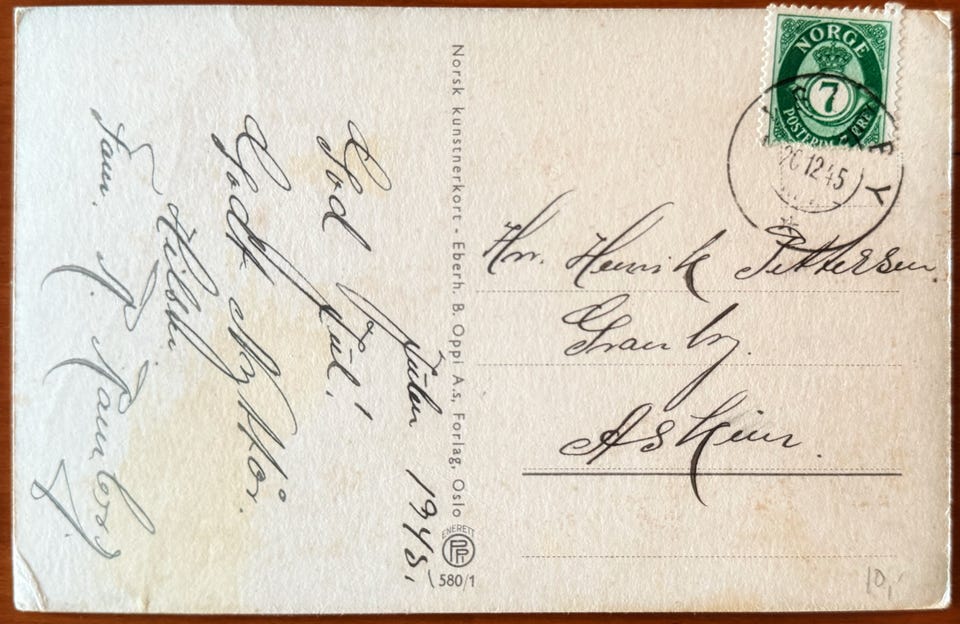 Julen 1945.
God Jul!
Godt Nyttår.
Hilsen
Fam.
Norsk kunstnerkort - Eberh. B. Oppi A.s, Forlag, Oslo
ENERETT
580/1
NORGE
7
POSTFRIM 7 ØRE
26 12 45
Hr. Henrik Pettersen
Granby.
Askim.
10,-